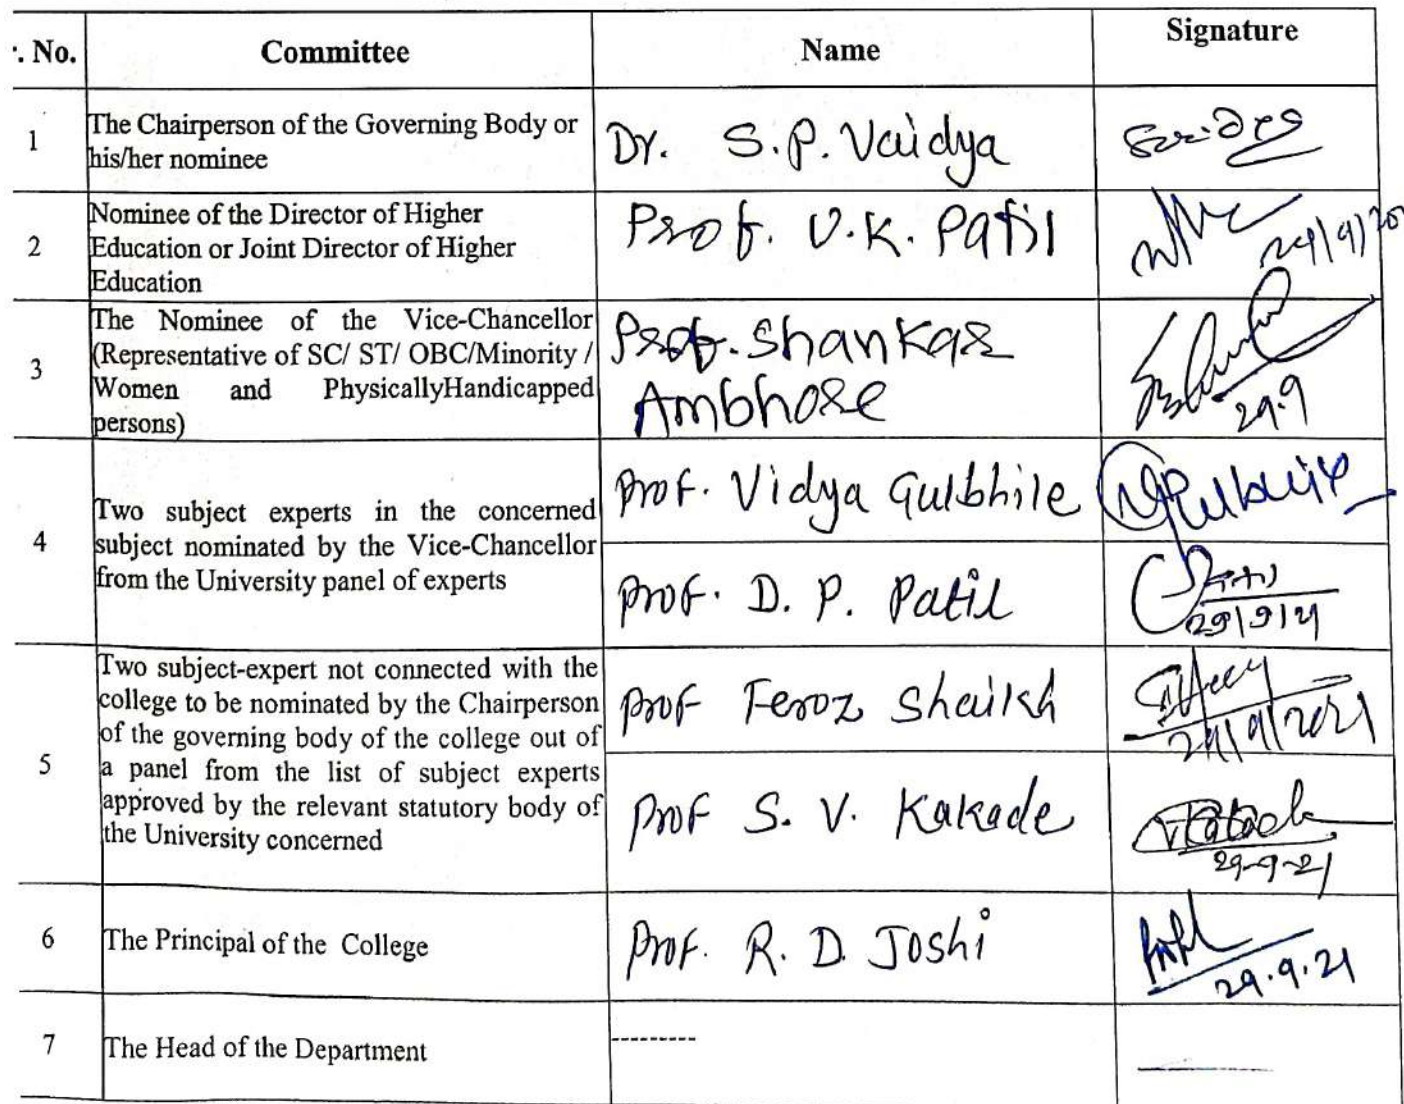 . No.
Committee
Name
Signature
1
The Chairperson of the Governing Body or
his/her nominee
Dr. S.P. Vaidya
2
Nominee of the Director of Higher
Education or Joint Director of Higher
Education
Prof. V.K. Patil
3
The Nominee of the Vice-Chancellor
(Representative of SC/ ST/ OBC/Minority /
Women and PhysicallyHandicapped
persons)
Prof. Shankar
Ambhore
29.9
4
Two subject experts in the concerned
subject nominated by the Vice-Chancellor
from the University panel of experts
Prof. Vidya Gulbhile
Prof. D. P. Patil
29|9|21
5
Two subject-expert not connected with the
college to be nominated by the Chairperson
of the governing body of the college out of
a panel from the list of subject experts
approved by the relevant statutory body of
the University concerned
Prof Feroz Shaikh
29/9/2021
Prof S. V. Kakade
29-9-21
6
The Principal of the College
Prof. R. D. Joshi
29.9.21
7
The Head of the Department
---------